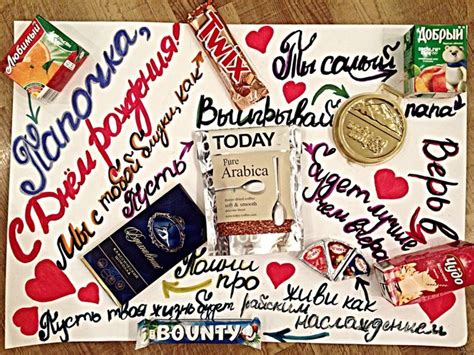 Любимый
Папочка,
С Днём рождения!
Мы с тобой близки, как
TWIX
Ты самый
Добрый
папа
Выигрывай
Пусть
TODAY
Pure
Arabica
soft & smooth
будет лучше,
чем вчера
Верь в
Чудо
Вдохновение
Помни
про
живи как
Пусть твоя жизнь будет райским
наслаждением
BOUNTY